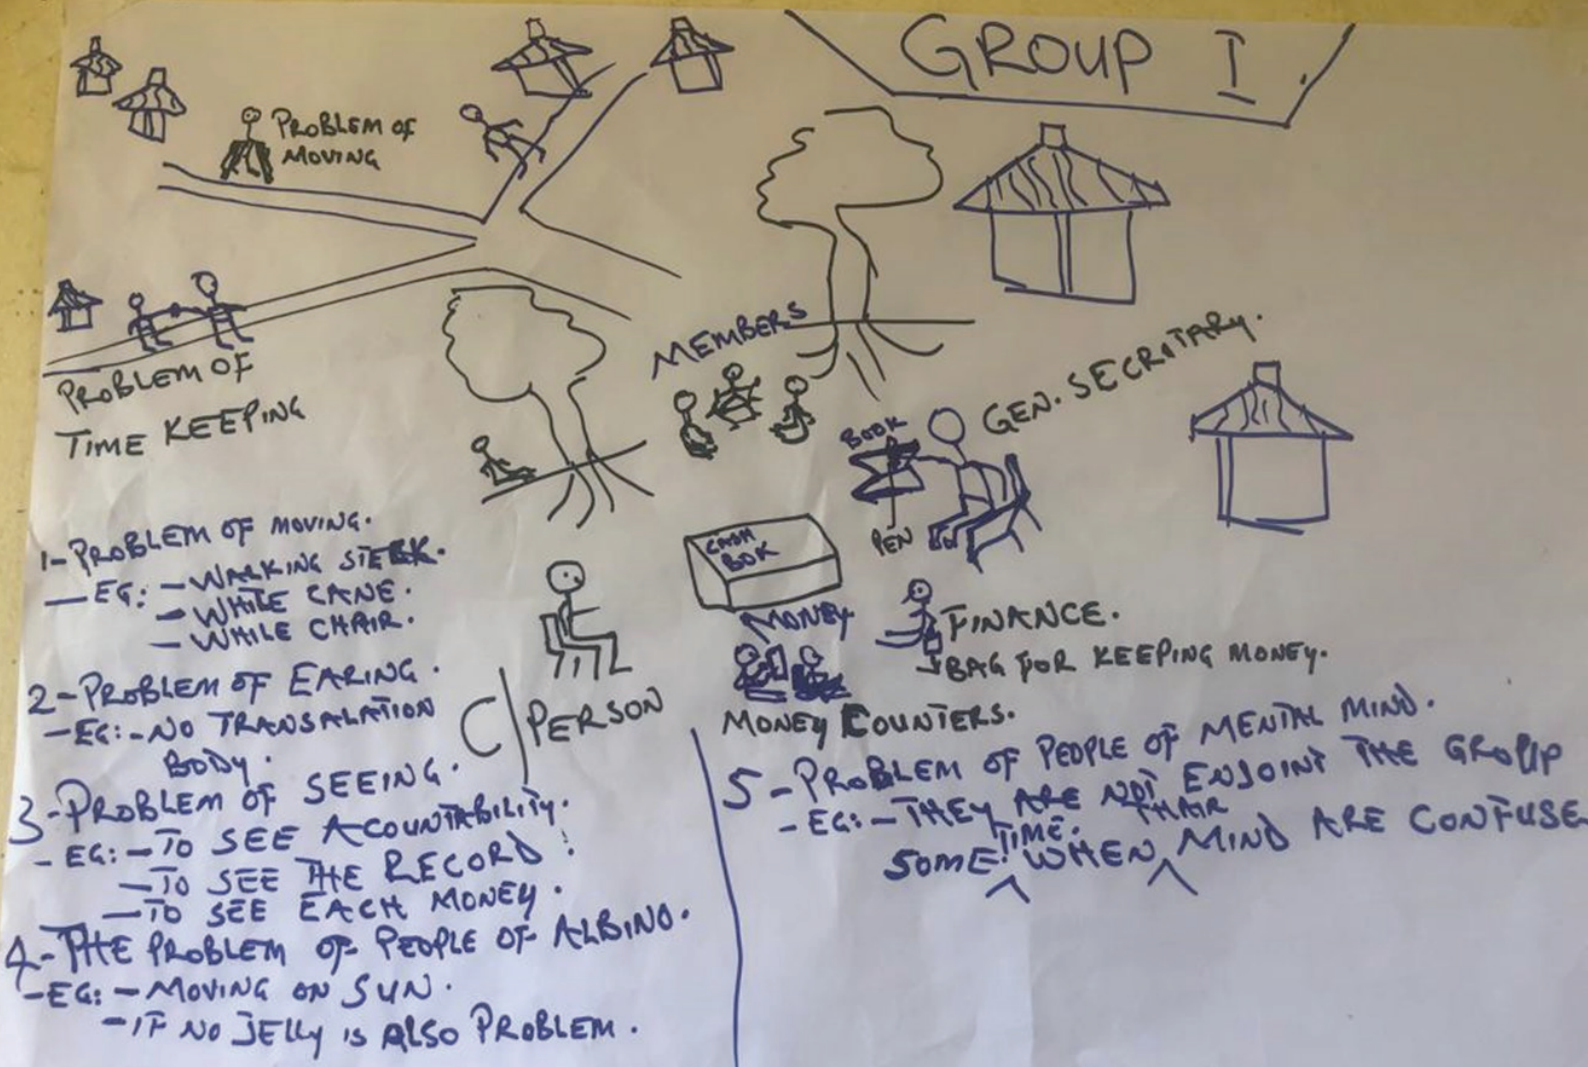 GROUP I.
PROBLEM OF
MOVING
PROBLEM OF
TIME KEEPING
MEMBERS
GEN. SECRETARY.
BOOK
PEN
CASH
BOK
MONEY
FINANCE.
BAG FOR KEEPING MONEY.
MONEY COUNTERS.
C/PERSON
1-PROBLEM OF MOVING.
- EG: - WALKING STECK.
- WHILE CANE.
- WHILE CHAIR.
2-PROBLEM OF EARING.
- EG: - NO TRANSALATION
BODY.
3-PROBLEM OF SEEING.
- EG: - TO SEE ACOUNTABILITY.
- TO SEE THE RECORD.
- TO SEE EACH MONEY.
4-THE PROBLEM OF PEOPLE OF ALBINO.
- EG: - MOVING ON SUN.
- IF NO JELLY IS ALSO PROBLEM.
5-PROBLEM OF PEOPLE OF MENTAL MIND.
- EG: - THEY ARE NOT ENJOINT THE GROUP
SOME TIME. WHEN THAIR MIND ARE CONFUSE